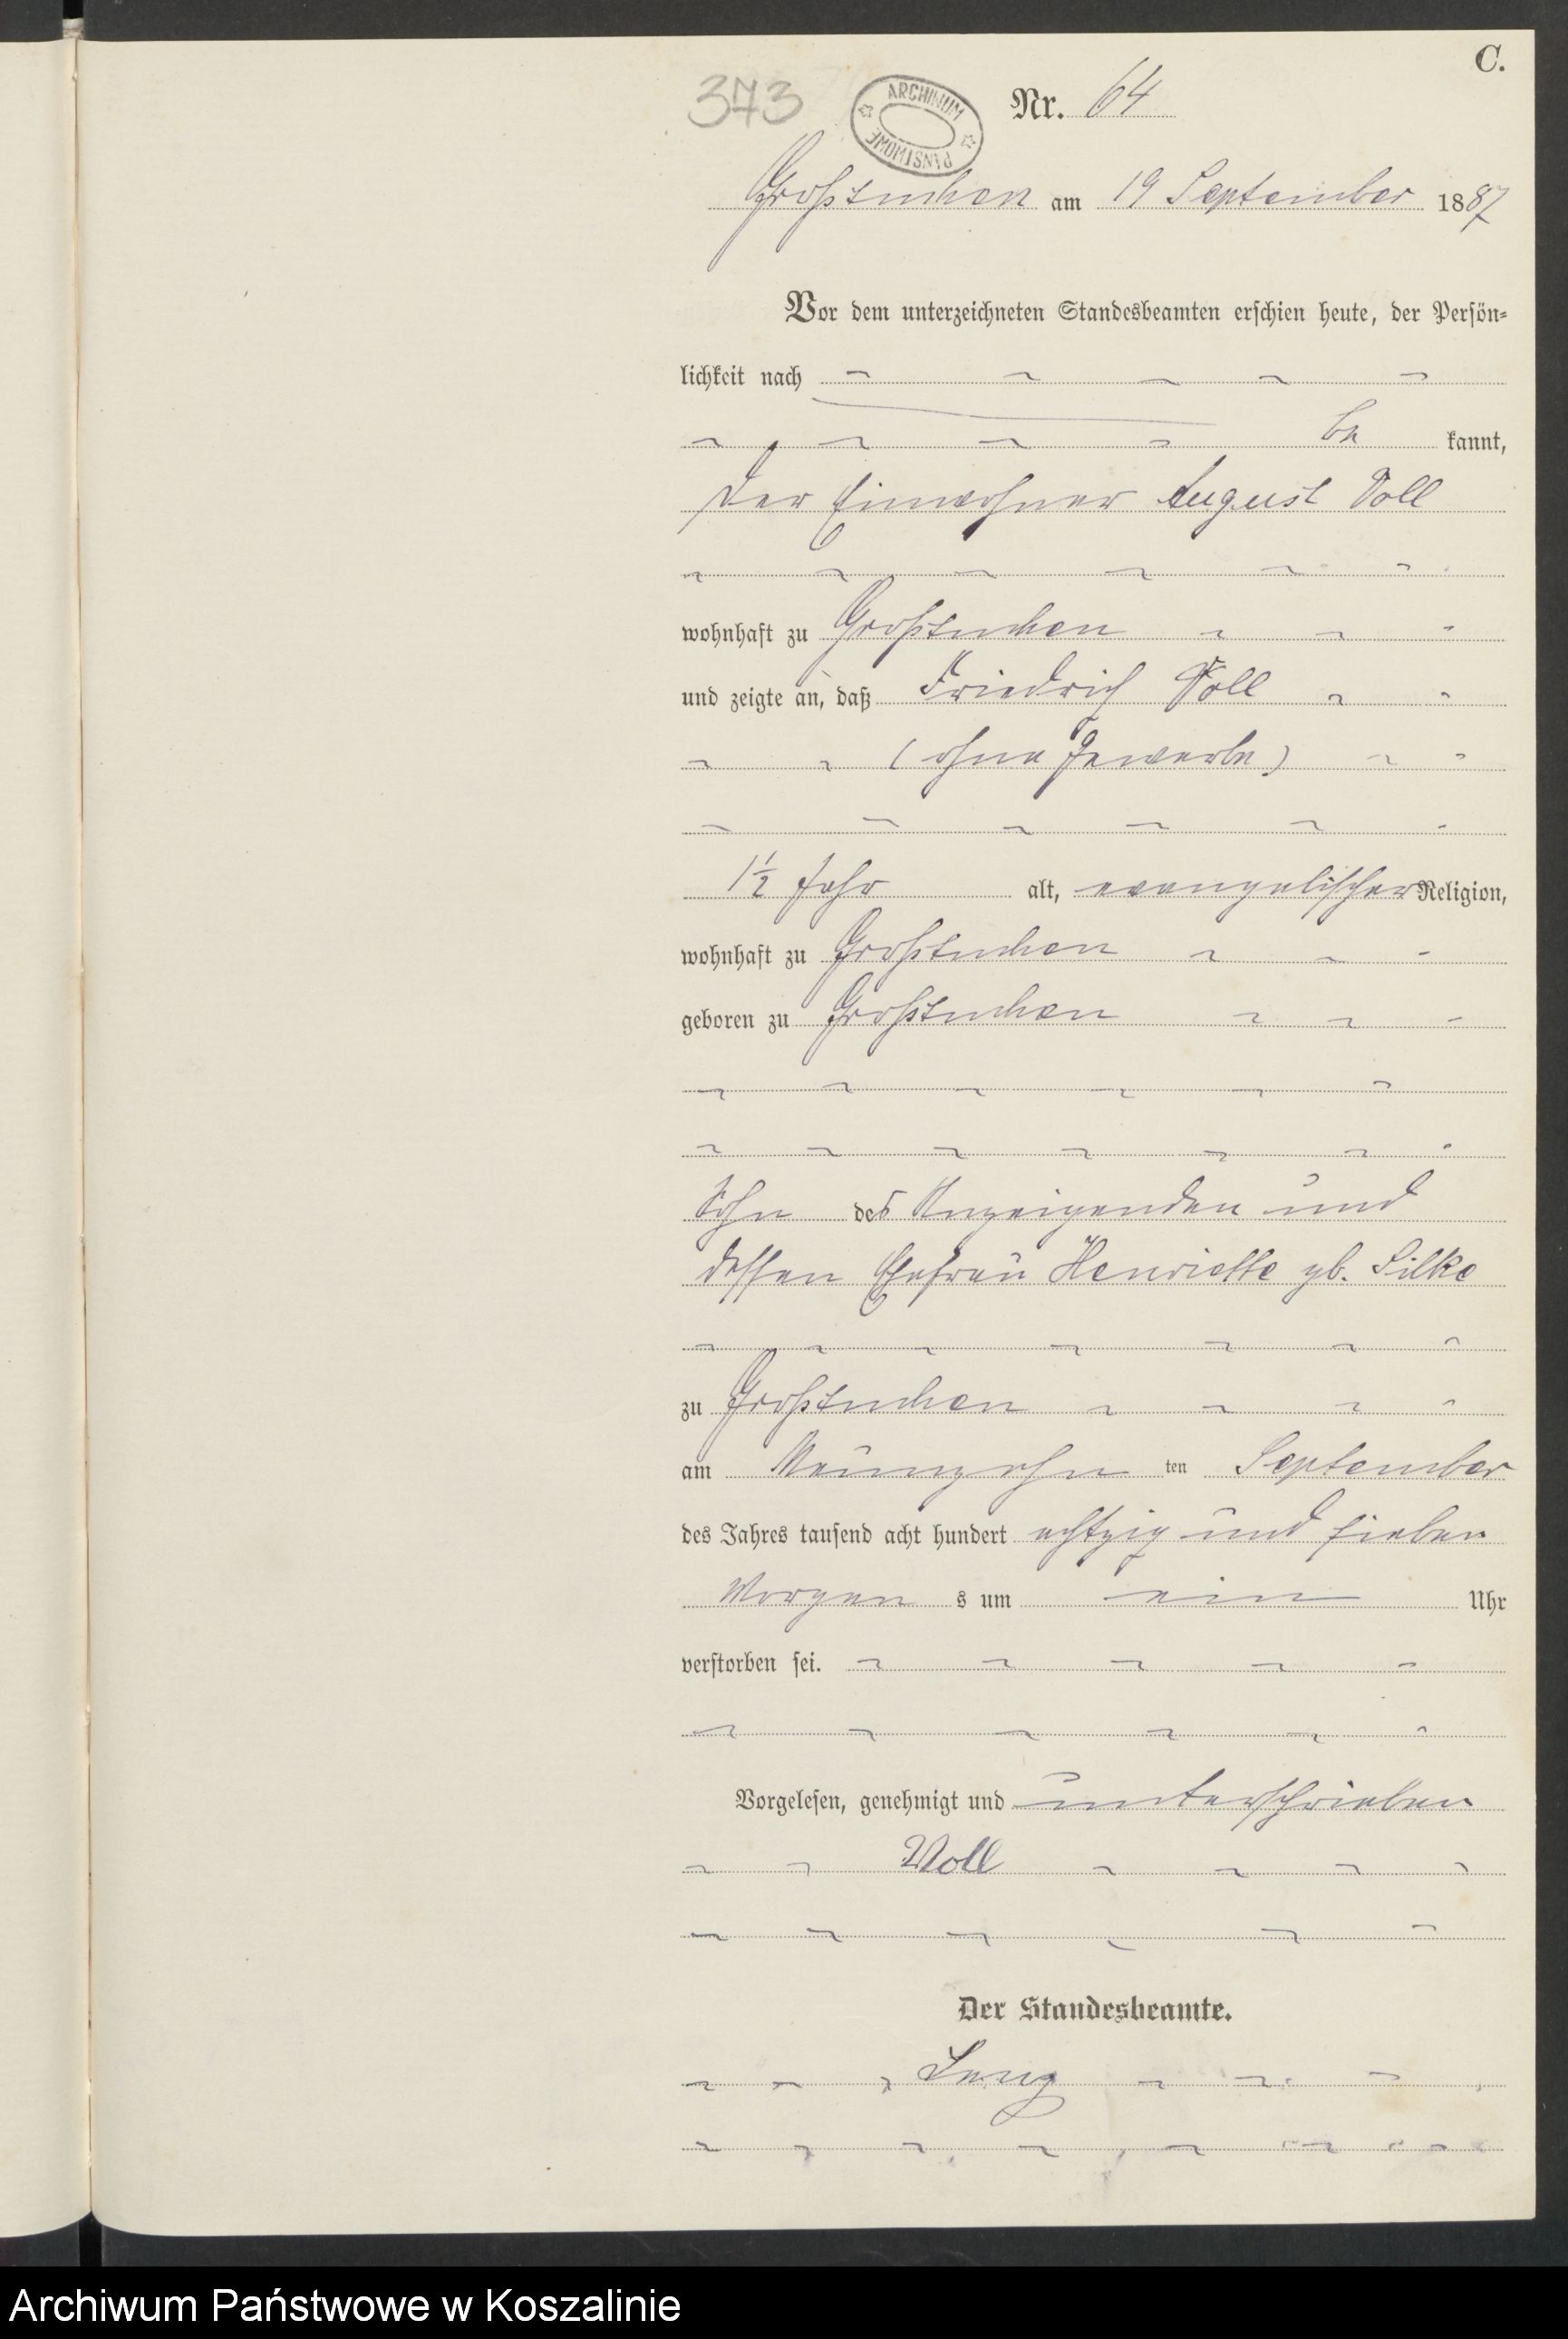 C.
373 ARCHIWUM PAŃSTWOWE Nr. 64
Großtuchen am 19 September 1887
Vor dem unterzeichneten Standesbeamten erschien heute, der Persön-
lichkeit nach
be kannt,
der Einwohner August Voll
wohnhaft zu Großtuchen
und zeigte an, daß Friedrich Voll
(ohne Gewerbe)
1½ Jahr alt, evangelischer Religion,
wohnhaft zu Großtuchen
geboren zu Großtuchen
Sohn des Anzeigenden und
dessen Ehefrau Henriette gb. Silke
zu Großtuchen
am Neunzehn ten September
des Jahres tausend acht hundert achtzig und sieben
Morgen s um ein Uhr
verstorben sei.
Vorgelesen, genehmigt und unterschrieben
Voll
Der Standesbeamte.
Archiwum Państwowe w Koszalinie